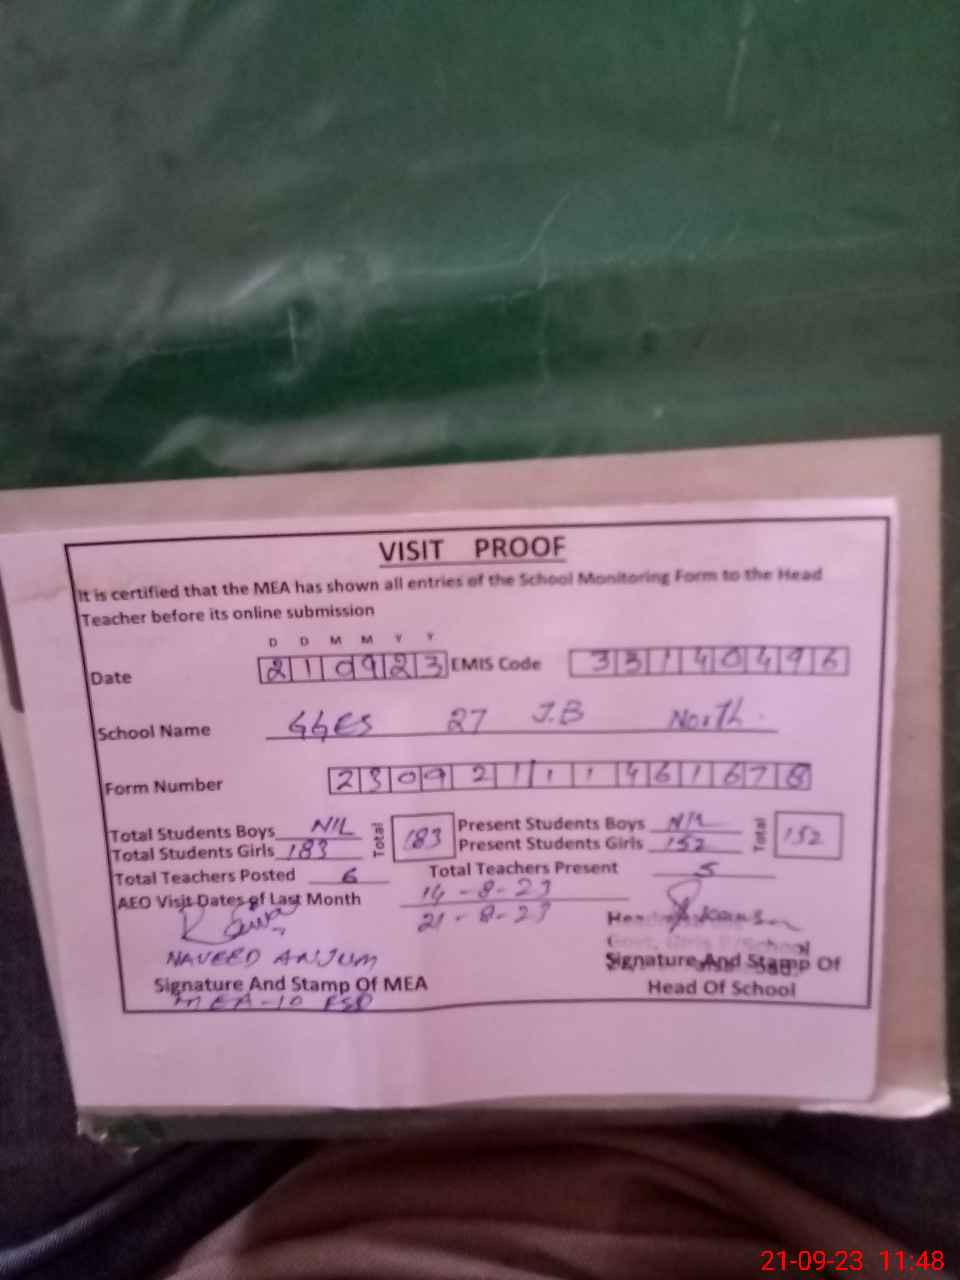 VISIT PROOF
It is certified that the MEA has shown all entries of the School Monitoring Form to the Head
Teacher before its online submission
D D M M Y Y
Date 210923 EMIS Code 33140496
School Name GGES 27 J.B North.
Form Number 23092111461678
Total Students Boys NIL Total 183 Present Students Boys NIL Total 152
Total Students Girls 183 Present Students Girls 152
Total Teachers Posted 6 Total Teachers Present 5
AEO Visit Dates of Last Month 14-8-23
21-8-23
NAVEED ANJUM
Signature And Stamp Of MEA Signature And Stamp Of
MEA-10 FSD Head Of School
21-09-23 11:48